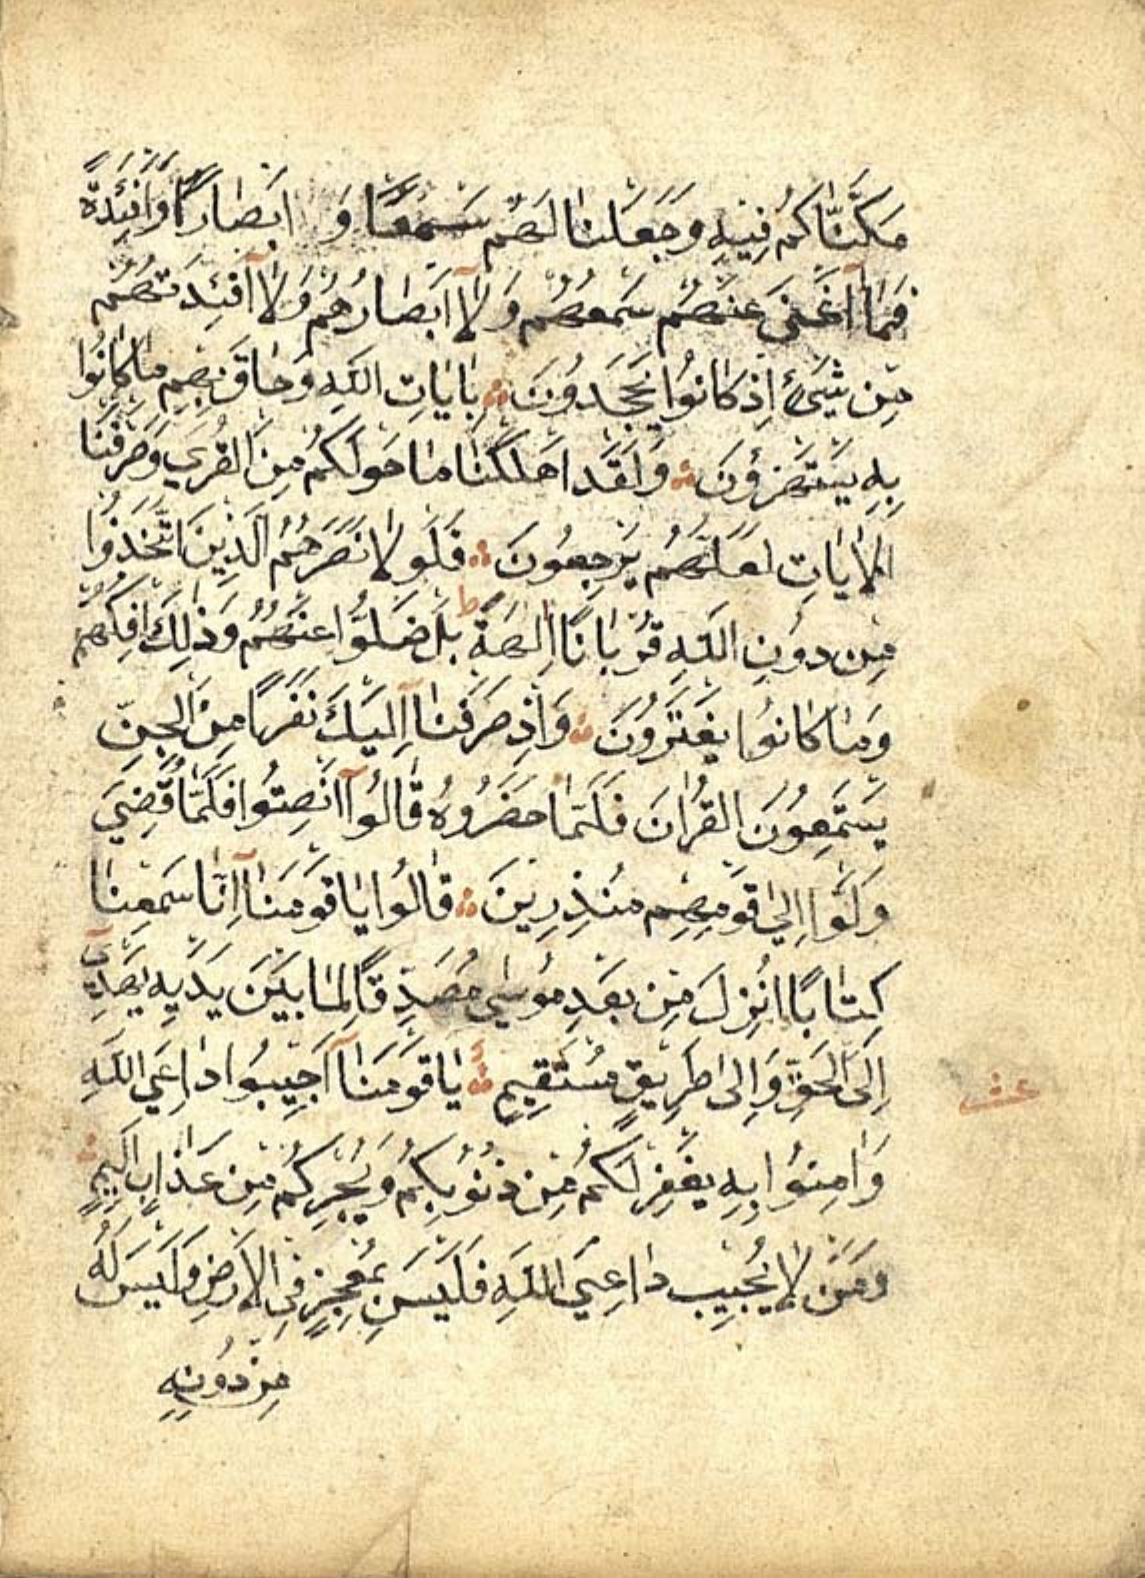 مَكَّنَّاكُمْ فِيهِ وَجَعَلْنَا لَهُمْ سَمْعًا وَ اَبْصَارًا وَاَفْئِدَةً
فَمَا اَغْنٰى عَنْهُمْ سَمْعُهُمْ وَلَا اَبْصَارُهُمْ وَلَا اَفْئِدَتُهُمْ
مِنْ شَيْءٍ اِذْ كَانُوا يَجْحَدُونَ بِاٰيَاتِ اللّٰهِ وَحَاقَ بِهِمْ مَا كَانُوا
بِهِ يَسْتَهْزِؤُنَ وَلَقَدْ اَهْلَكْنَا مَا حَوْلَكُمْ مِنَ الْقُرٰى وَصَرَّفْنَا
الْاٰيَاتِ لَعَلَّهُمْ يَرْجِعُونَ فَلَوْلَا نَصَرَهُمُ الَّذِينَ اتَّخَذُوا
مِنْ دُونِ اللّٰهِ قُرْبَانًا اٰلِهَةً ط بَلْ ضَلُّوا عَنْهُمْ وَذٰلِكَ اِفْكُهُمْ
وَمَا كَانُوا يَفْتَرُونَ وَاِذْ صَرَفْنَا اِلَيْكَ نَفَرًا مِنَ الْجِنِّ
يَسْتَمِعُونَ الْقُرْاٰنَ فَلَمَّا حَضَرُوهُ قَالُوا اَنْصِتُوا فَلَمَّا قُضِيَ
وَلَّوْا اِلٰى قَوْمِهِمْ مُنْذِرِينَ قَالُوا يَا قَوْمَنَا اِنَّا سَمِعْنَا
كِتَابًا اُنْزِلَ مِنْ بَعْدِ مُوسٰى مُصَدِّقًا لِمَا بَيْنَ يَدَيْهِ يَهْدِي
اِلَى الْحَقِّ وَاِلٰى طَرِيقٍ مُسْتَقِيمٍ يَا قَوْمَنَا اَجِيبُوا دَاعِيَ اللّٰهِ
عشر
وَاٰمِنُوا بِهِ يَغْفِرْ لَكُمْ مِنْ ذُنُوبِكُمْ وَيُجِرْكُمْ مِنْ عَذَابٍ اَلِيمٍ
وَمَنْ لَا يُجِيبْ دَاعِيَ اللّٰهِ فَلَيْسَ بِمُعْجِزٍ فِي الْاَرْضِ وَلَيْسَ لَهُ
مِنْ دُونِهِ